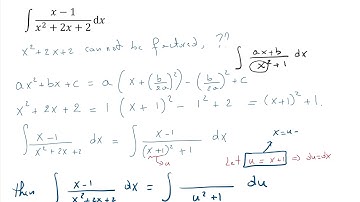 ∫ x-1 / x²+2x+2 dx
x²+2x+2 can not be factored, ??
∫ ax+b / x²+1 dx
ax²+bx+c = a(x+(b/2a)²) - (b/2a)²+c
x²+2x+2 = 1(x+1)² - 1²+2 = (x+1)²+1.
∫ x-1 / x²+2x+2 dx = ∫ x-1 / (x+1)²+1 dx
u
x=u-
Let u = x+1 ⇒ du=dx
then ∫ x-1 / x²+2x+2 dx = ∫ / u²+1 du